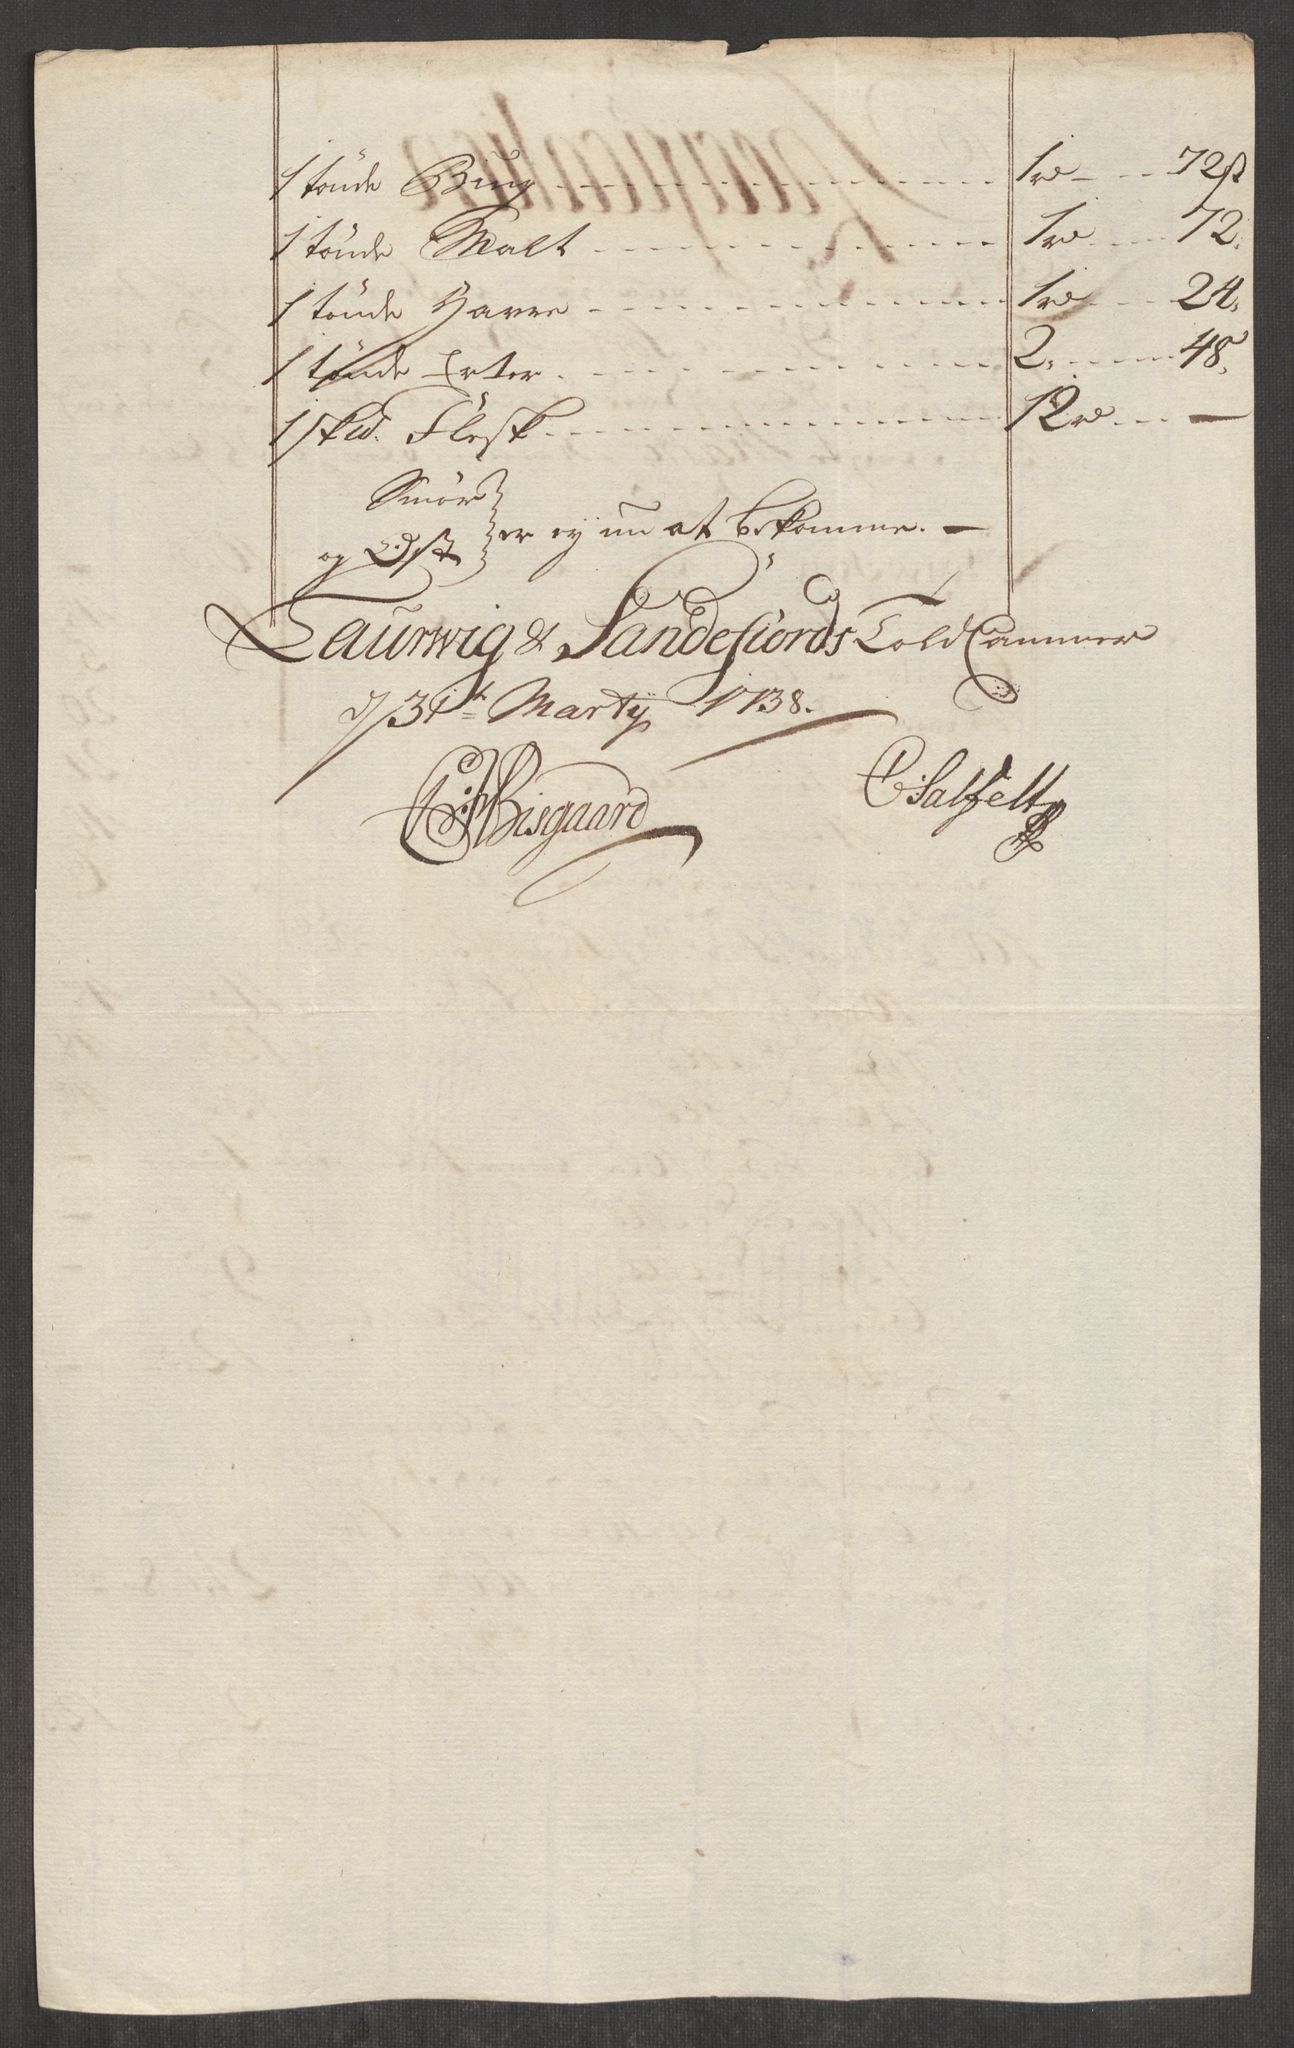 1 tønde Biug - - - 1 rd - - 72 ß
1 tønde Malt - - - 1 rd - - 72.
1 tønde Havre - - - 1 rd - - 24.
1 tønde Erter - - - 2. - - 48.
1 skid. Flesk - - - 12 rd - - —
Smør
og Ost } er ey nu at bekomme. —
Laurwig & Sandefiords Told Cammer
d/ 31te Marty 1738.
Bisgaard C Salfelt